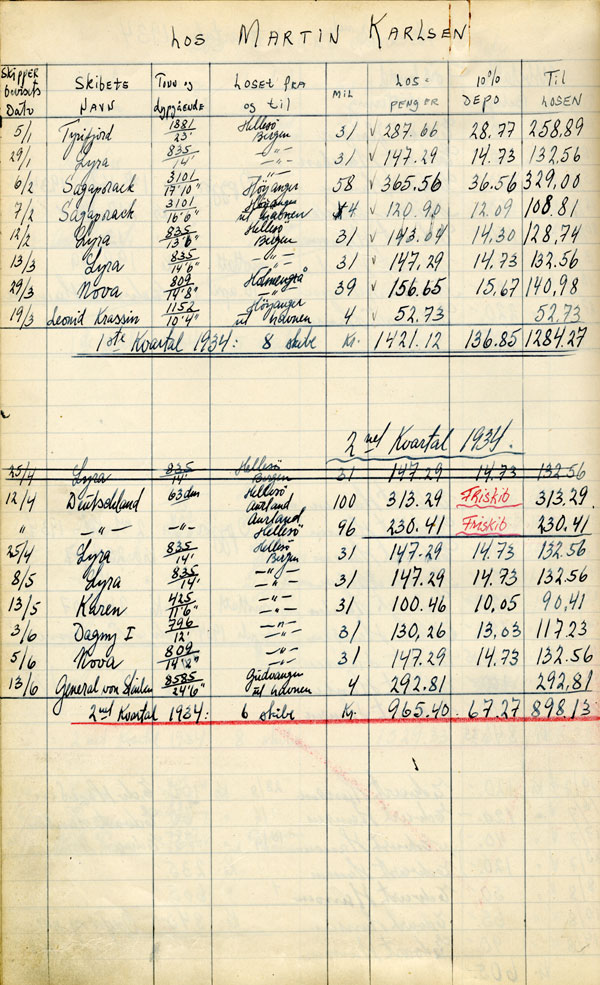 Los Martin Karlsen
Skipper bevisets Dato | Skibets Navn | Tonn og dypgående | Loset fra og til | Mil | Los-penger | 10% Depo | Til Losen
5/1 Tyrifjord 1881 23' Hellesö Bergen 31 √ 287.66 28,77 258,89
29/1 Lyra 835 14' -"- -"- 31 √ 147.29 14.73 132,56
6/2 Sagaporack 3101 17'10" -"- Höyanger 58 √ 365,56 36.56 329,00
7/2 Sagaporack 3101 16'6" Höyanger ut havnen 4 √ 120.90 12.09 108.81
12/2 Lyra 835 13'6" Hellesö Bergen 31 √ 143.04 14,30 128,74
13/3 Lyra 835 14'6" -"- 31 √ 147,29 14.73 132.56
29/3 Nova 809 14'8" Holmengrå 39 √ 156.65 15,67 140,98
19/3 Leonid Krassin 1152 10'4" Höyanger ut havnen 4 √ 52.73 52.73
1ste Kvartal 1934: 8 skibe Kr. 1421.12 136.85 1284.27
2net Kvartal 1934.
25/4 Lyra 835 14' Hellesö Bergen 31 147.29 14.73 132.56
12/4 Deutschland 63 dm Hellesö Aurland 100 313.29 Friskib 313.29
" -"- -"- Aurland Hellesö 96 230.41 Friskib 230.41
25/4 Lyra 835 14' Hellesö Bergen 31 147.29 14.73 132.56
8/5 Lyra 835 14' -"- 31 147.29 14.73 132.56
13/5 Karen 425 11'6" -"- 31 100.46 10,05 90,41
3/6 Dagny I 796 12' -"- -"- 31 130,26 13,03 117.23
5/6 Nova 809 -"- 31 147.29 14.73 132.56
13/6 General von 8585 24'6" Gudvangen ut havnen 4 292.81 292,81
2net Kvartal 1934: 6 skibe Kr. 965.40 67.27 898,13